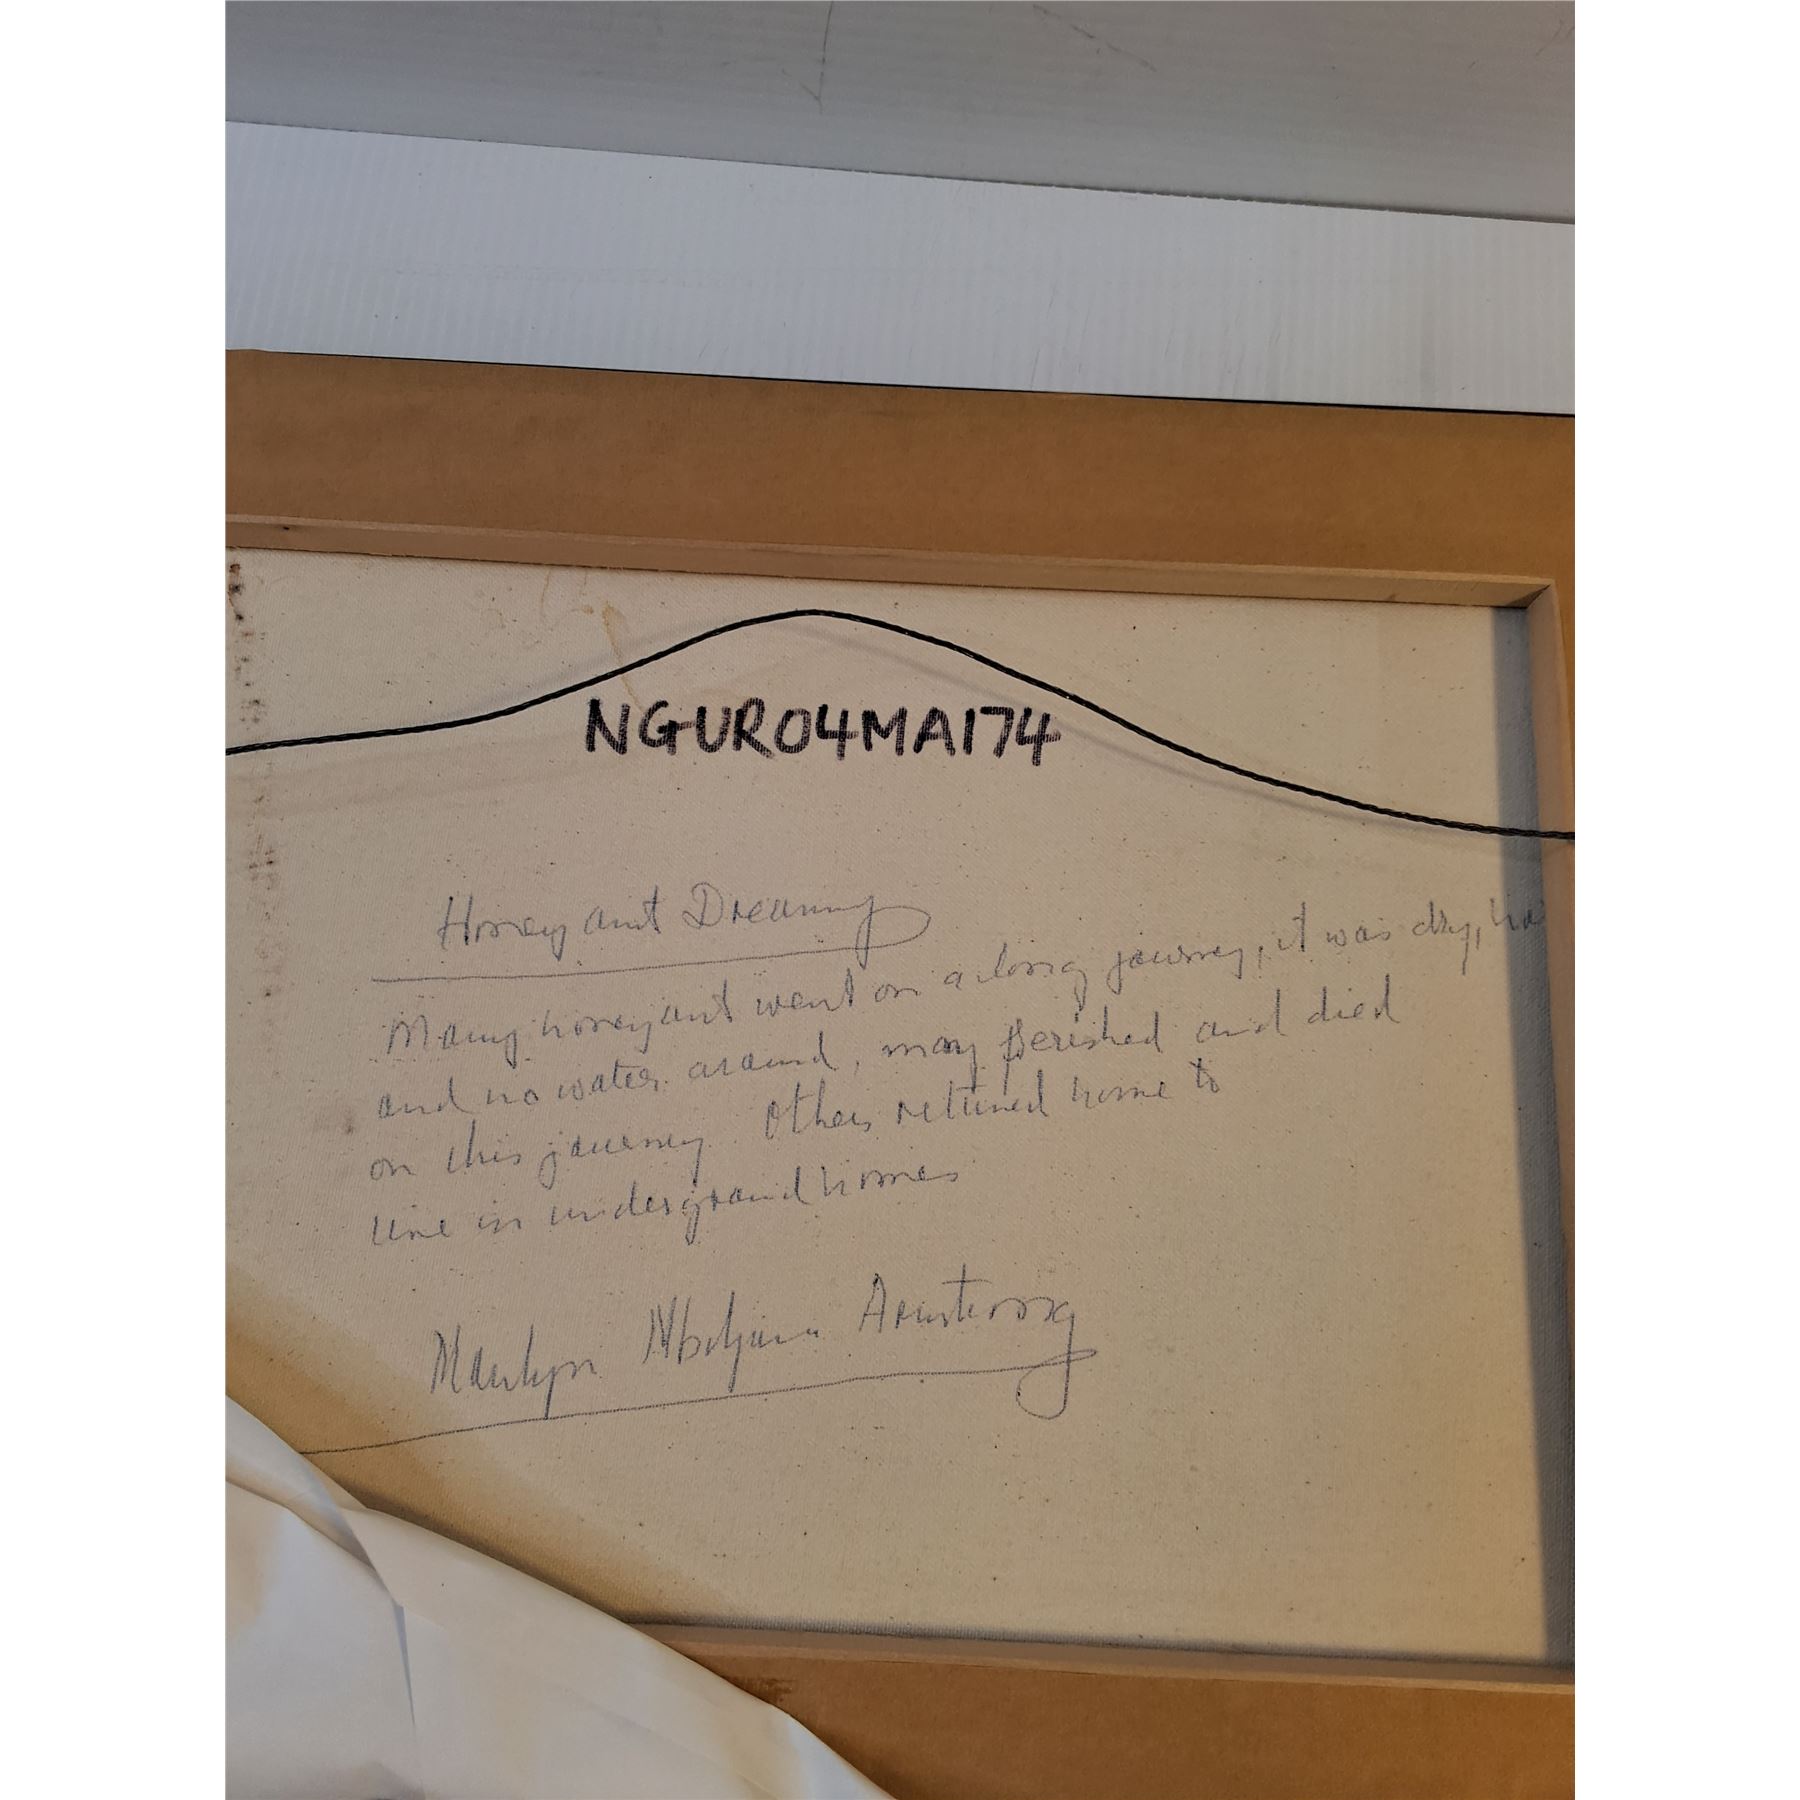 NGUR04MA174
Honey ant Dreaming
Many honey ant went on a long journey, it was dry, ho
and no water around, many perished and died
on this journey. Others returned home to
live in underground homes
Marilyn Armstrong